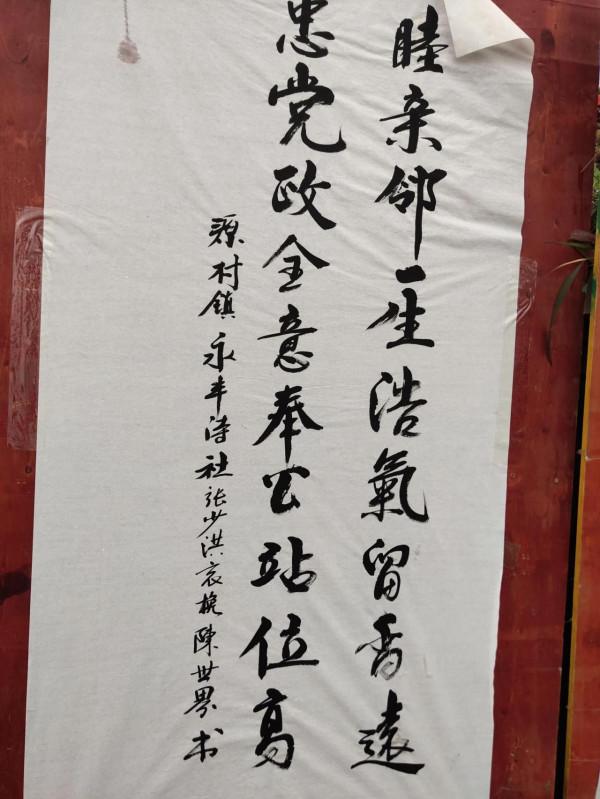 睦亲邻一生浩氣留香遠
忠党政全意奉公站位高
源村镇永丰诗社张少洪哀挽陳世界书